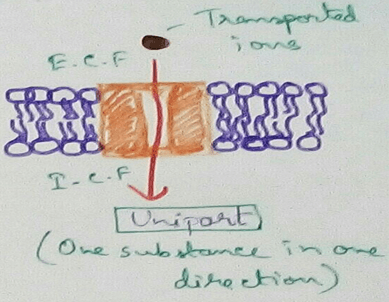 Transported
ions
E.C.F
I.C.F
Uniport
(One substance in one
direction)